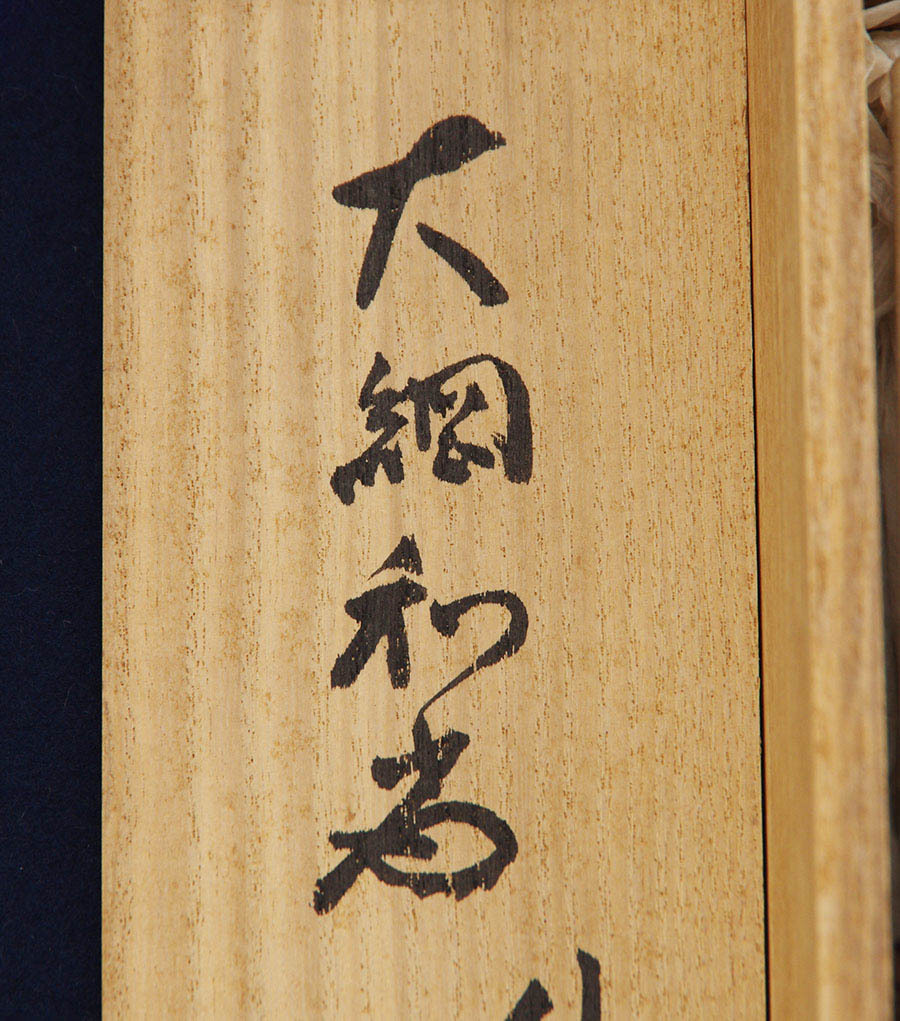 大綱和尚